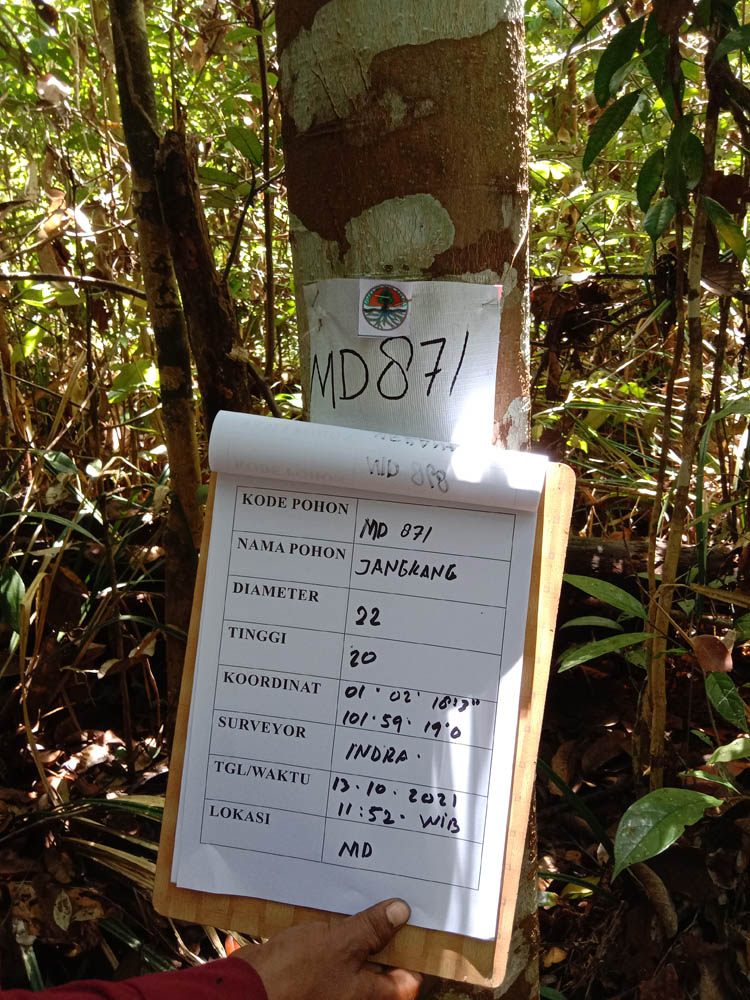 MD 871
KODE POHON MD 871
NAMA POHON JANGKANG
DIAMETER 22
TINGGI 20
KOORDINAT 01° 02' 18.3"
101° 59' 19.0
SURVEYOR INDRA.
TGL/WAKTU 13.10.2021
11:52. WIB
LOKASI MD